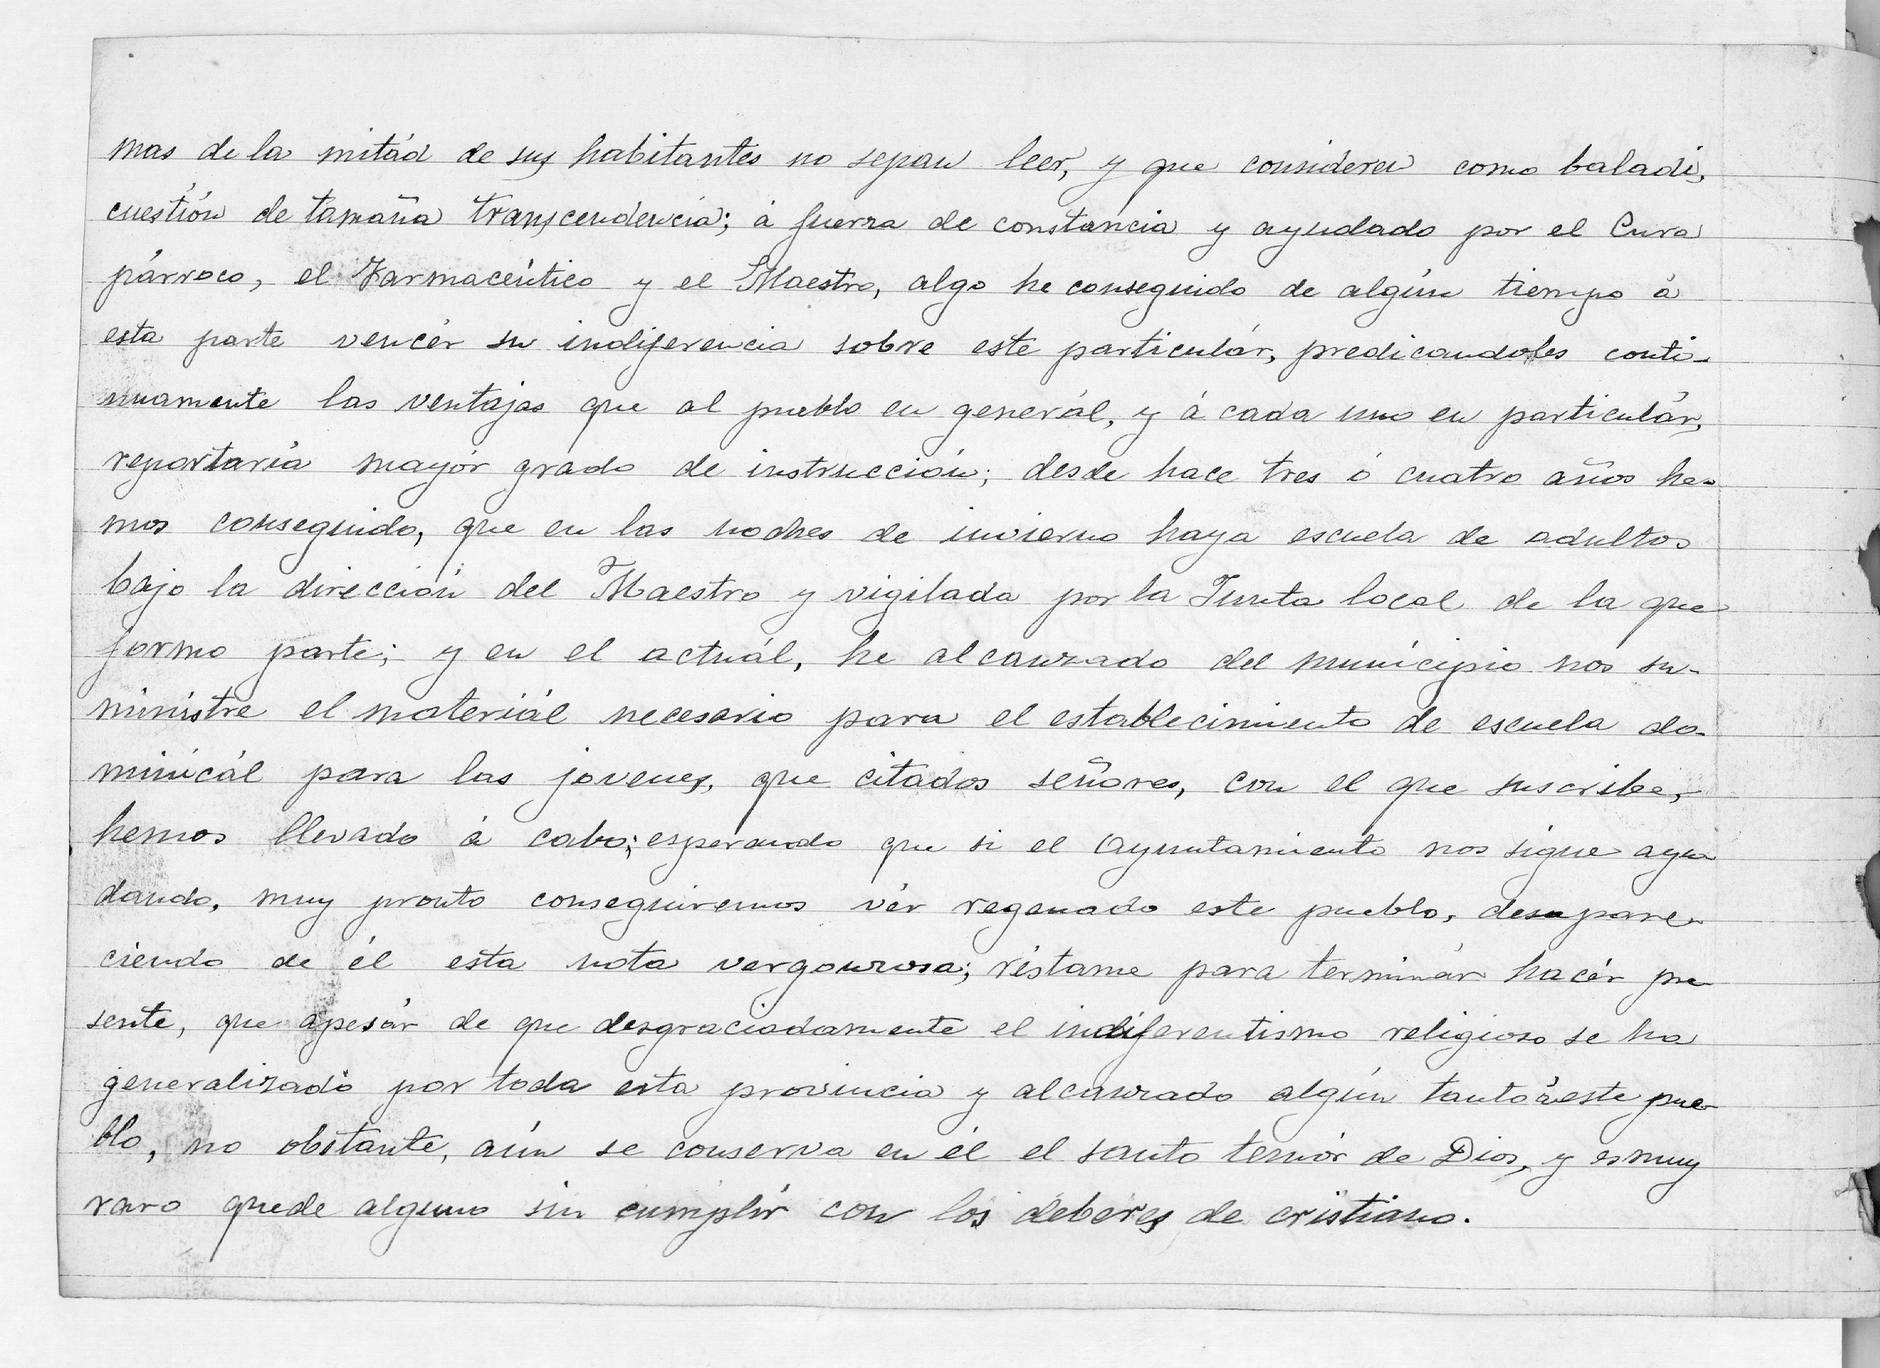 mas de la mitád de sus habitantes no sepan leer, y que consideren como baladi,
cuestión de tamaña transcendencia; á fuerza de constancia y ayudado por el Cura
párroco, el Farmaceútico y el Maestro, algo he conseguido de algún tiempo á
esta parte vencér su indiferencia sobre este particulár, predicandoles conti-
nuamente las ventajas que al pueblo en generál, y á cada uno en particulár,
reportaría mayór grado de instrucción; desde hace tres ó cuatro años he-
mos conseguido, que en las noches de invierno haya escuela de adultos
bajo la dirección del Maestro y vigilada por la Junta local de la que
formo parte; y en el actuál, he alcanzado del município nos su-
ministre el materiál necesario para el establecimiento de escuela do-
minicál para las jovenes, que citados señores, con el que suscribe,
hemos llevado á cabo; esperando que si el Ayuntamiento nos sigue ayu
dando, muy pronto conseguiremos vér regenado este pueblo, desapare-
ciendo de él esta nota vergonzosa; réstame para terminár hacér pre
sente, que apesár de que desgraciadamente el indiferentismo religioso se ha
generalizado por toda esta provincia y alcanzado algún tanto á este pue-
blo, no obstante, aún se conserva en él el santo temór de Dios, y es muy
raro quede alguno sin cumplir con los deberes de cristiano.